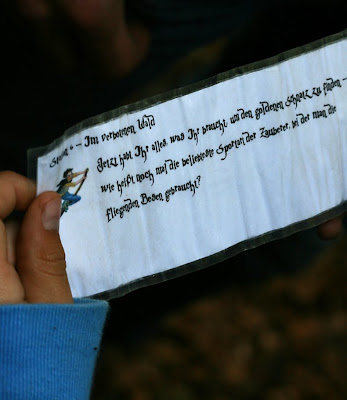 Station 6 – Im verbotenen Wald
Jetzt habt Ihr alles, was Ihr braucht, um den goldenen Schatz zu finden –
wie heißt noch mal die beliebteste Sportart der Zauberer, bei der man die
fliegenden Besen gebraucht?